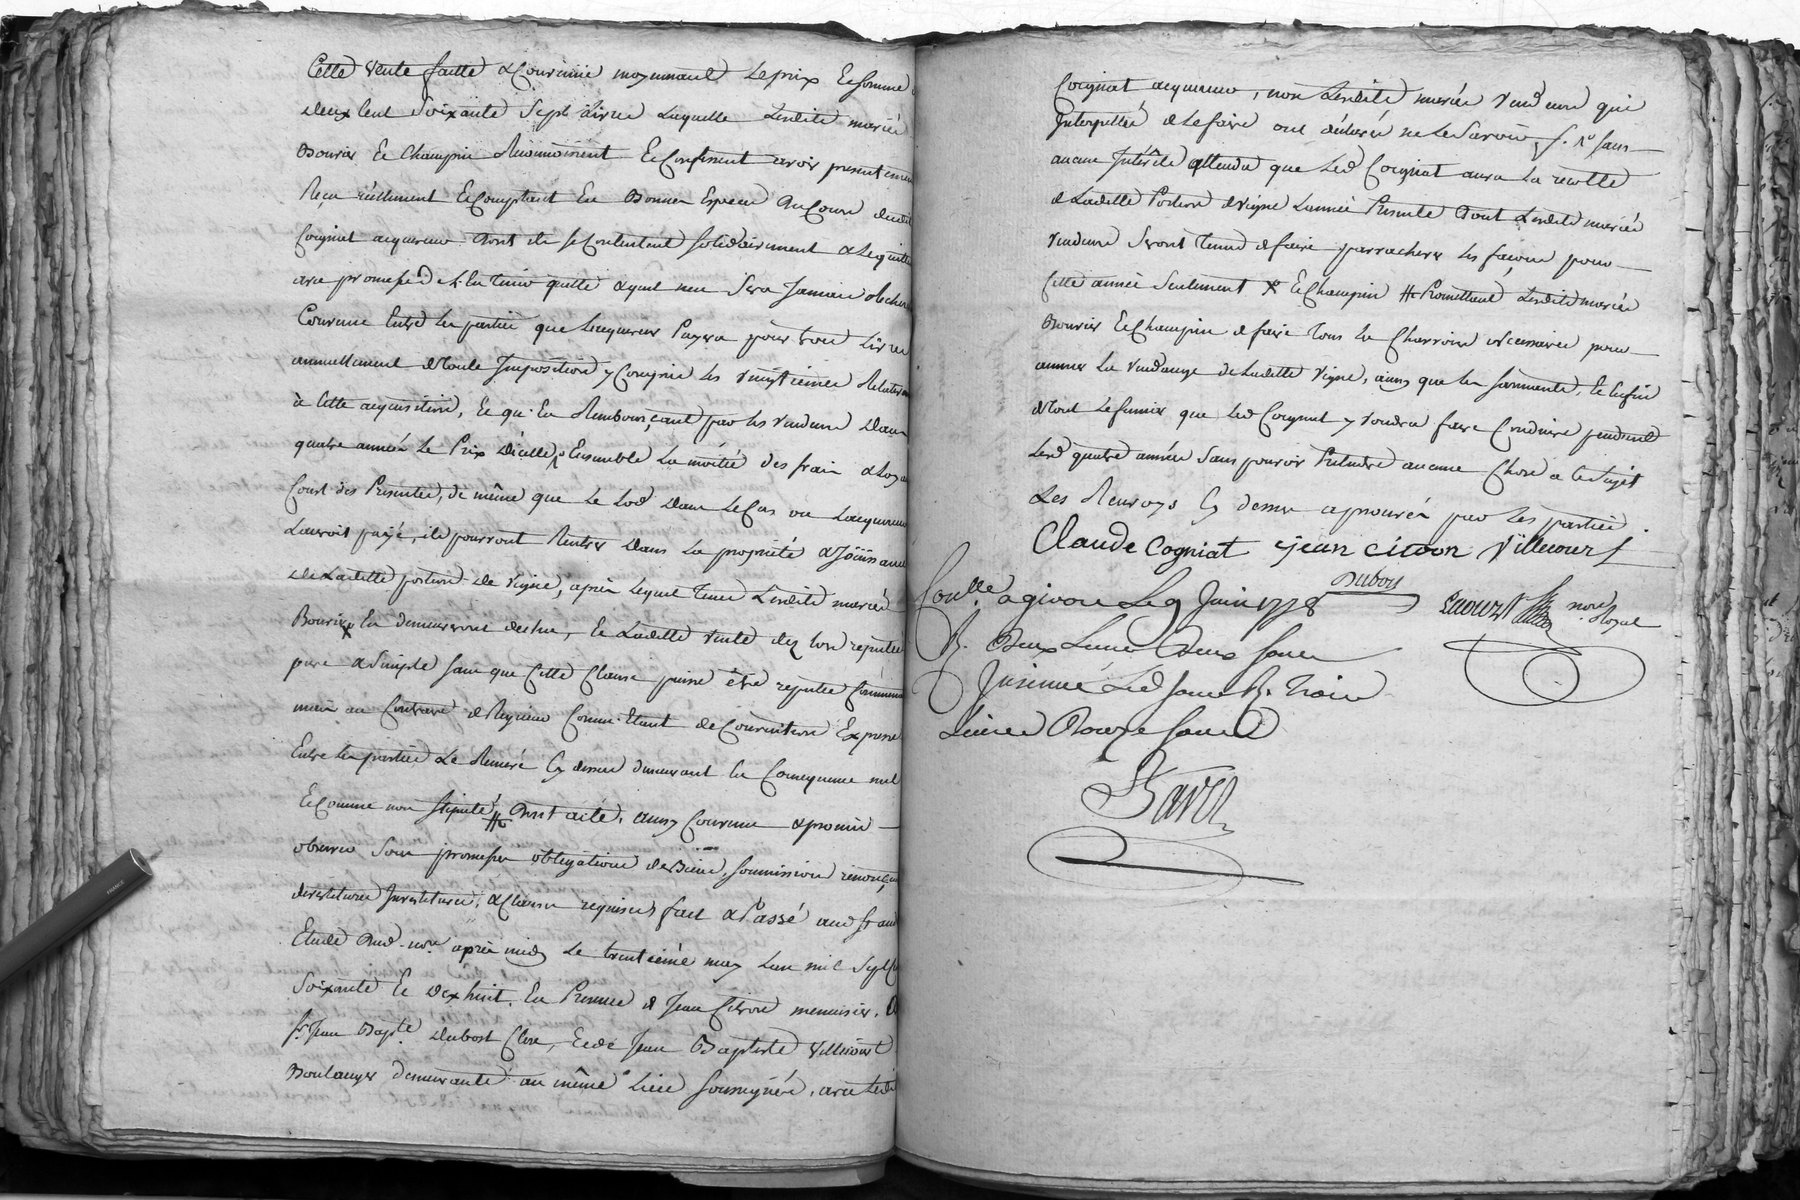 Cette vente faitte & Convenue moyennant Le prix Et somme
deux Cent Soixante Sept Livres Laquelle Lesdits mariés
Bouvier Et Champin Reconnoissent Et Confessent avoir presentement
Reçu réellement Et Comptant En Bonnes Especes Au Cours dudit
Coigniat acquereur dont ils se Contentent solidairement & Lequitte
avec promesse de Len tenir quitte ayant neu Sera Jamais recherché
Convenu Entre les parties que Lacquereur Payera pour tou Livres
annuellement de toute Imposition y Compris les vingtiemes Relatives
à Cette acquisition, Et qu'En Rembourçant par les vendeurs dans
quatre années Le Prix d'icelle, Ensemble La moitié des frais & Loyaux
Cout des Presentes, de même que Le Lod dans Le Cas où Lacquereur
Lauroit payé, ils pourront Rentrer dans La propriété & Jouissance
de Laditte portion de vigne, après Lequel Tems Lesdits mariés
Bouvier En demeureront dechus, Et Laditte vente dez lors reputée
pure & Simple sans que Cette Clause puisse être reputée Comminatoire
mais au Contraire de Rigueur Comme Etant de Convention Expresse
Entre les parties Le Remeré Cy dessus demeurant En Consequence nul
Et Comme non stipulé # Dont acte. ainsy Convenu & promis
observer Sous promesses obligations de Biens, soumissions renonçons
devestitures Investitures, & Clauses requises fait & Passé aud
Etude dud. nore après midy Le trentiéme may Lan mil Sept Cent
Soixante Et dix huit. En Presence de Jean Citron menuisier,
sr Jean Bapte. Dubost Clerc, Et de Jean Baptiste Villecourt
Boulanger demeurants au même Lieu soussignés, avec Ledit
Coigniat acquereur, non Lesdits mariés vendeurs qui
Interpellés de Le faire ont déclaré ne Le Savoir, s. r. sans
aucun Intérêts attendu que Led Coigniat aura La recolte
de Laditte Portion de vigne Lannée Presente Dont Lesdits mariés
vendeurs Seront Tenus de faire parrachever les façons pour
Cette année Seulement x Et Champin # Promettant Lesdits mariés
Bouvier Et Champin de faire tous les Charrois necessaires pour
amener La vendange de Laditte vigne, ainsy que Les sarments, Et Enfin
de tout Le fumier que Led Coigniat y voudra faire Conduire pendant
Lesd quatre années Sans pouvoir Pretendre aucune Chose a Ce Sujet
Les Renvoys Cy dessus aprouvés par les parties.
Claude Cogniat jean citron Villecourt
Dubost
Conlle a givors Le 9 Juin 1778 nore Royal
R. Deux Livres Deux Sous
Insinué Led Jour R. Trois
Livres Douze Sous